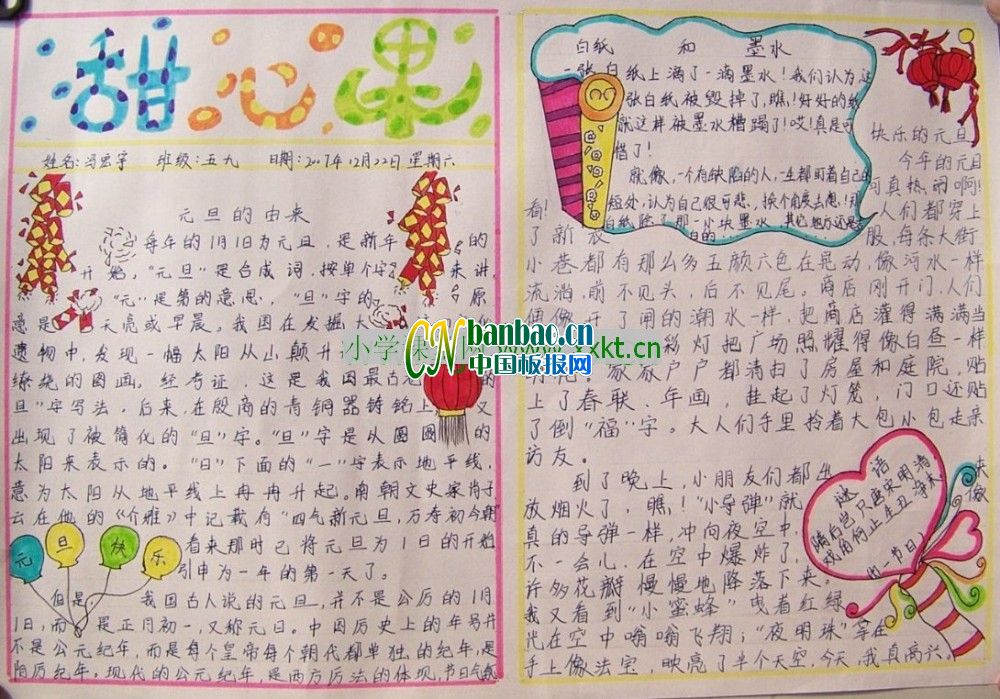 甜心果
姓名:冯宏宇 班级:五九 日期:2007年12月22日 星期六
元旦的由来
每年的1月1日为元旦,是新年的
开始,"元旦"是合成词,按单个字来讲,
"元"是第的意思,"旦"字的原
意是天亮或早晨。我国在发掘大
遗物中,发现一幅太阳从山颠升
缭绕的图画,经考证,这是我国最古的
旦"字写法,后来,在殷商的青铜器铸铭上,又
出现了被简化的"旦"字。"旦"字是从圆圆的
太阳来表示的。"日"下面的"一"字表示地平线,
意为太阳从地平线上冉冉升起。南朝文史家肖子
云在他的《介雅》中记载有"四气新元旦,万寿初今朝
看来那时已将元旦为1日的开始
引申为一年的第一天了。
元旦快乐
但是,我国古人说的元旦,并不是公历的1月
1日,而是正月初一,又称元日。中国历史上的年号并
不是公元纪年,而是每个皇帝每个朝代都单独的纪年,是
阴历纪年。现代的公元纪年,是西方历法的体现,节日气氛
白纸和墨水
一张白纸上滴了一滴墨水!我们认为这
张白纸被毁掉了,瞧!好好的纸
就这样被墨水糟蹋了!哎!真是可
惜了!
就像,一个有缺陷的人,一生都盯着自己的
短处,认为自己很可悲,换个角度去想!
白纸除了那一小块墨水,其它地方还是
白的
快乐的元旦
今年的元旦
可真热闹啊!
看!人们都穿上
了新衣服,每条大街
小巷都有那么多五颜六色在晃动,像河水一样
流淌,前不见头,后不见尾。商店刚开门,人们
便像开了闸的潮水一样,把商店灌得满满当
彩灯把广场照耀得像白昼一样
家家户户都清扫了房屋和庭院,贴
上了春联、年画,挂起了灯笼,门口还贴
了倒"福"字。大人们手里拎着大包小包走亲
访友。
到了晚上,小朋友们都出去
放烟火了,瞧!"小导弹"就像
真的导弹一样,冲向夜空中,
不一会儿,在空中爆炸了,
许多花瓣慢慢地降落下来。
我又看到"小蜜蜂"曳着红绿
光在空中嗡嗡飞翔;"夜明珠"拿在
手上像法宝,映亮了半个天空,今天,我真高兴。
谜语
CN banbao.cn
中国板报网
小学课 网 www. xxkt.cn